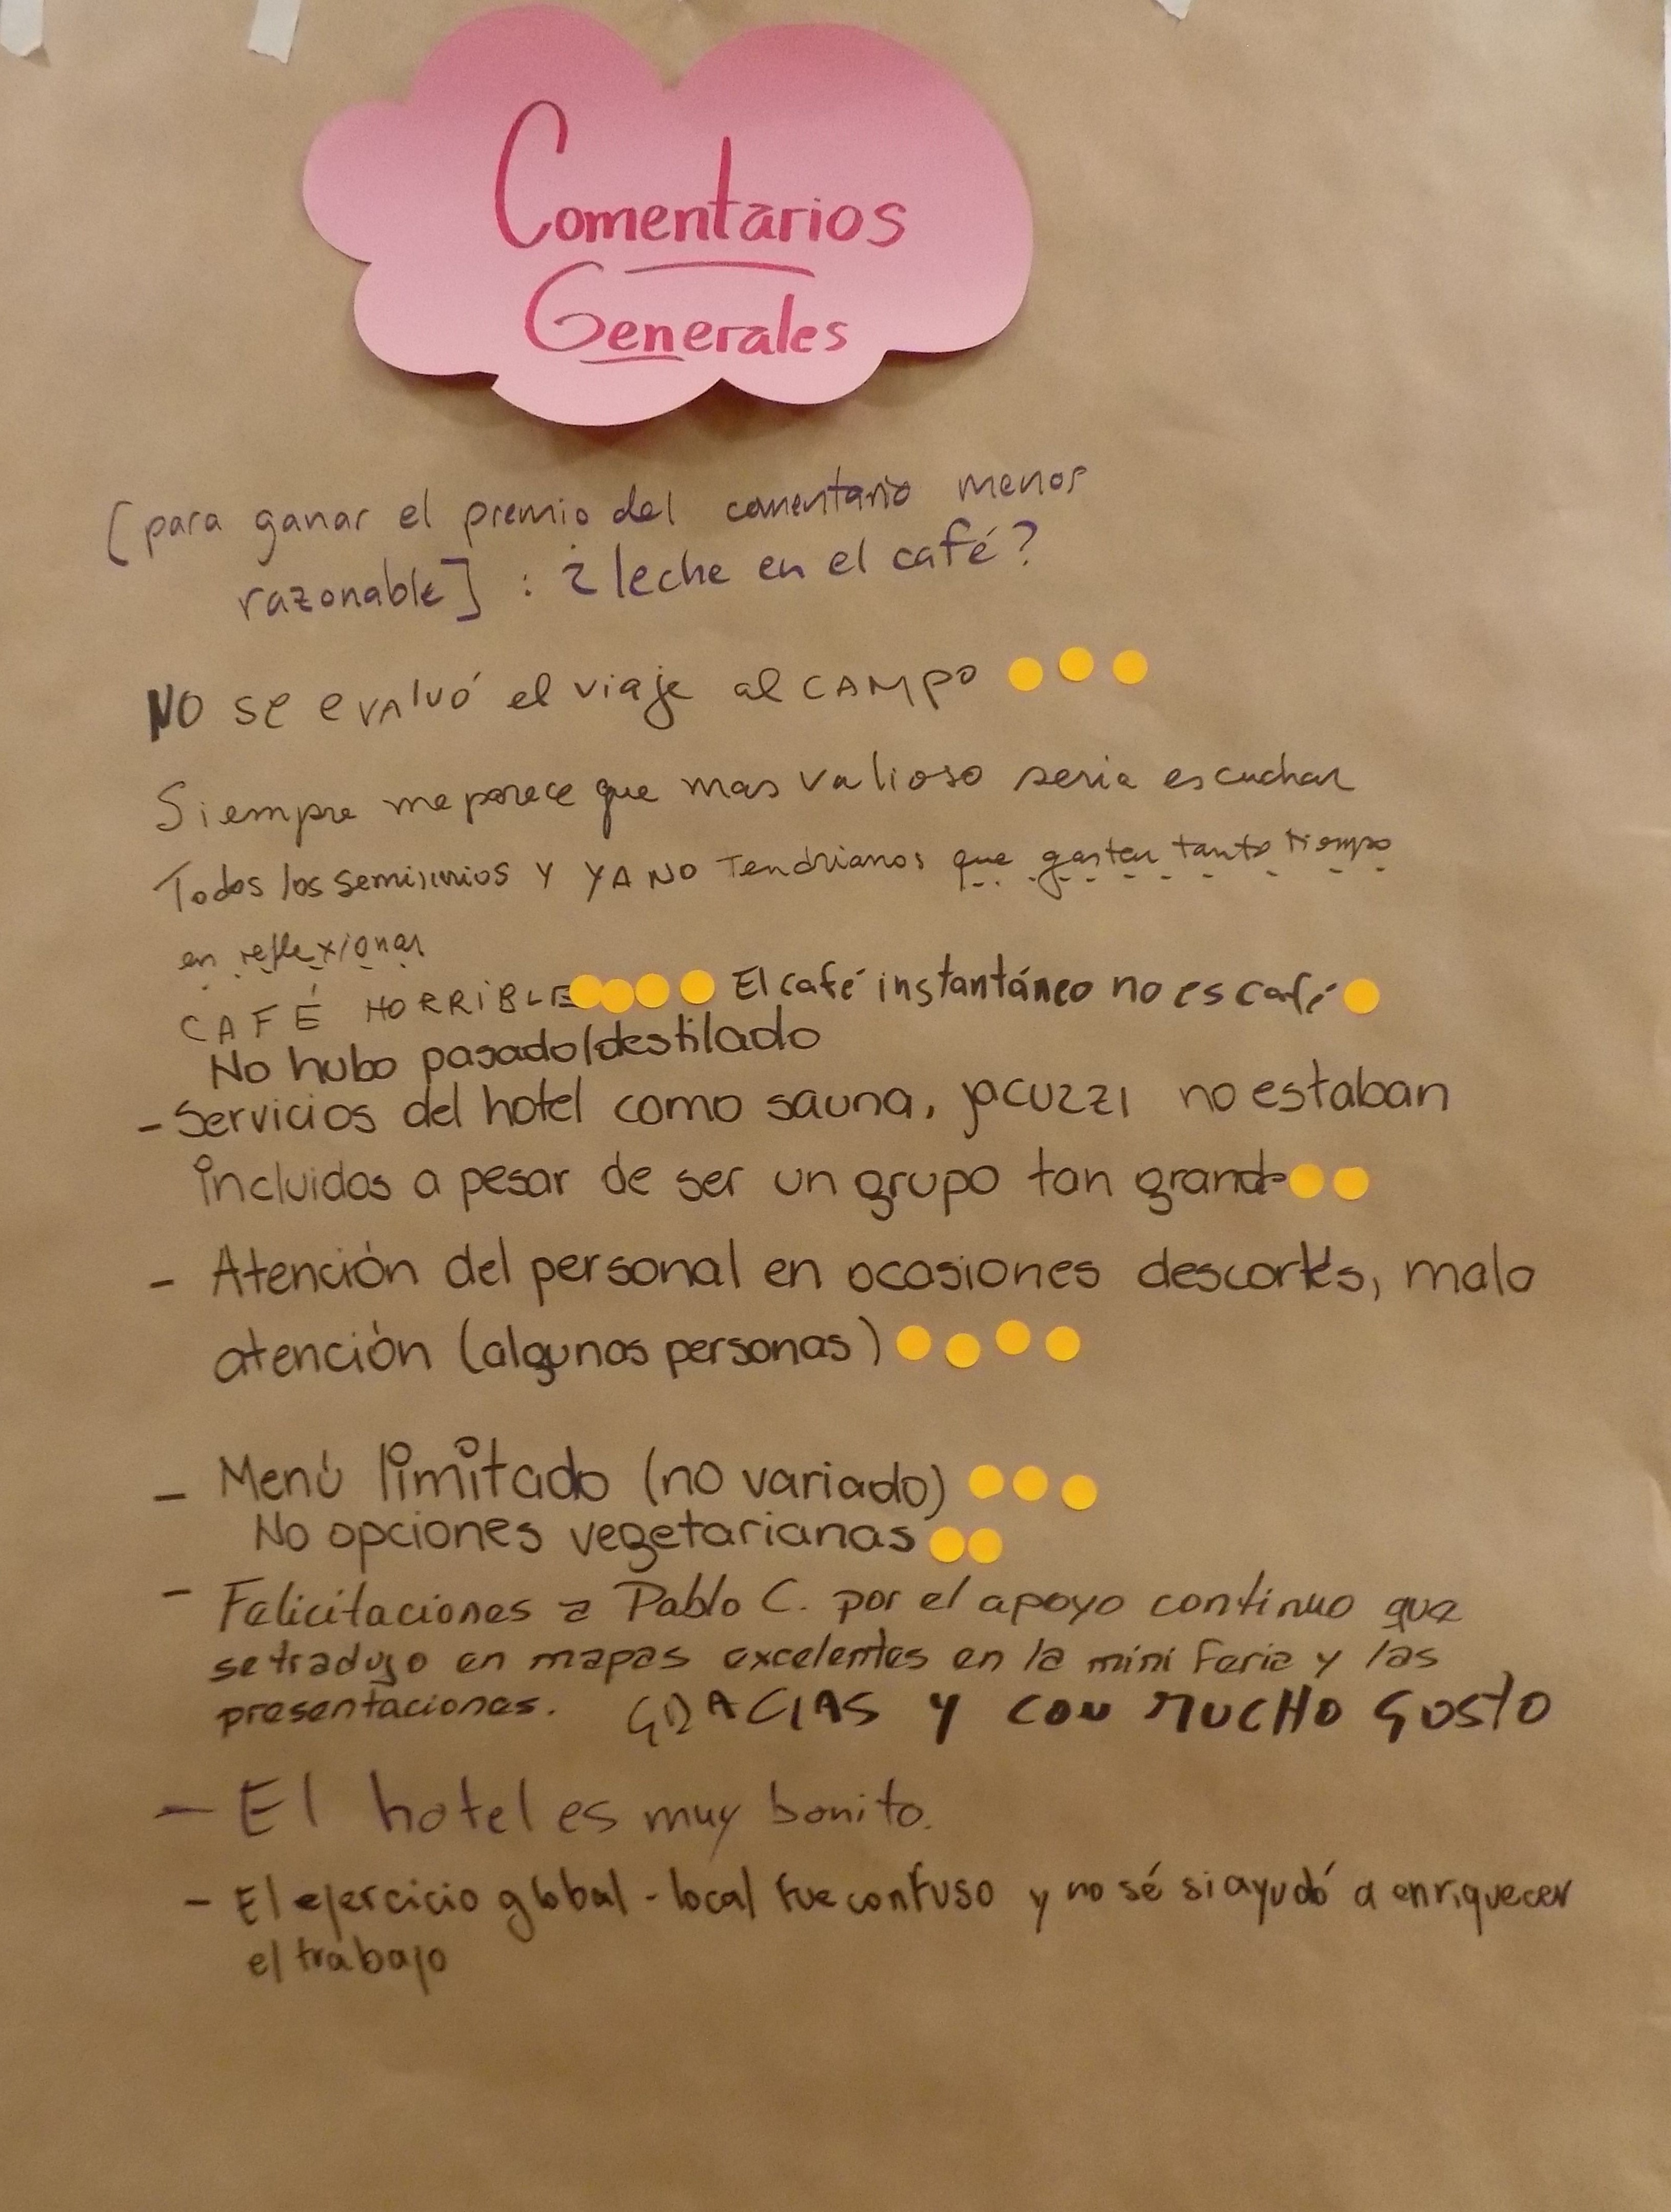 Comentarios
Generales
[para ganar el premio del comentario menos
razonable] : ¿leche en el café?
NO se evaluó el viaje al CAMPO
Siempre me parece que mas valioso seria escuchar
Todos los seminarios y YA NO Tendriamos que gastar tanto tiempo
en reflexionar
CAFÉ HORRIBLE El café instantáneo no es café
No hubo pasado/destilado
- Servicios del hotel como sauna, jacuzzi no estaban
incluidos a pesar de ser un grupo tan grande
- Atención del personal en ocasiones descortés, mala
atención (algunas personas)
- Menú limitado (no variado)
No opciones vegetarianas
- Felicitaciones a Pablo C. por el apoyo continuo que
se tradujo en mapas excelentes en la mini feria y las
presentaciones. GRACIAS Y CON MUCHO GUSTO
- El hotel es muy bonito.
- El ejercicio global-local fue confuso y no sé si ayudó a enriquecer
el trabajo